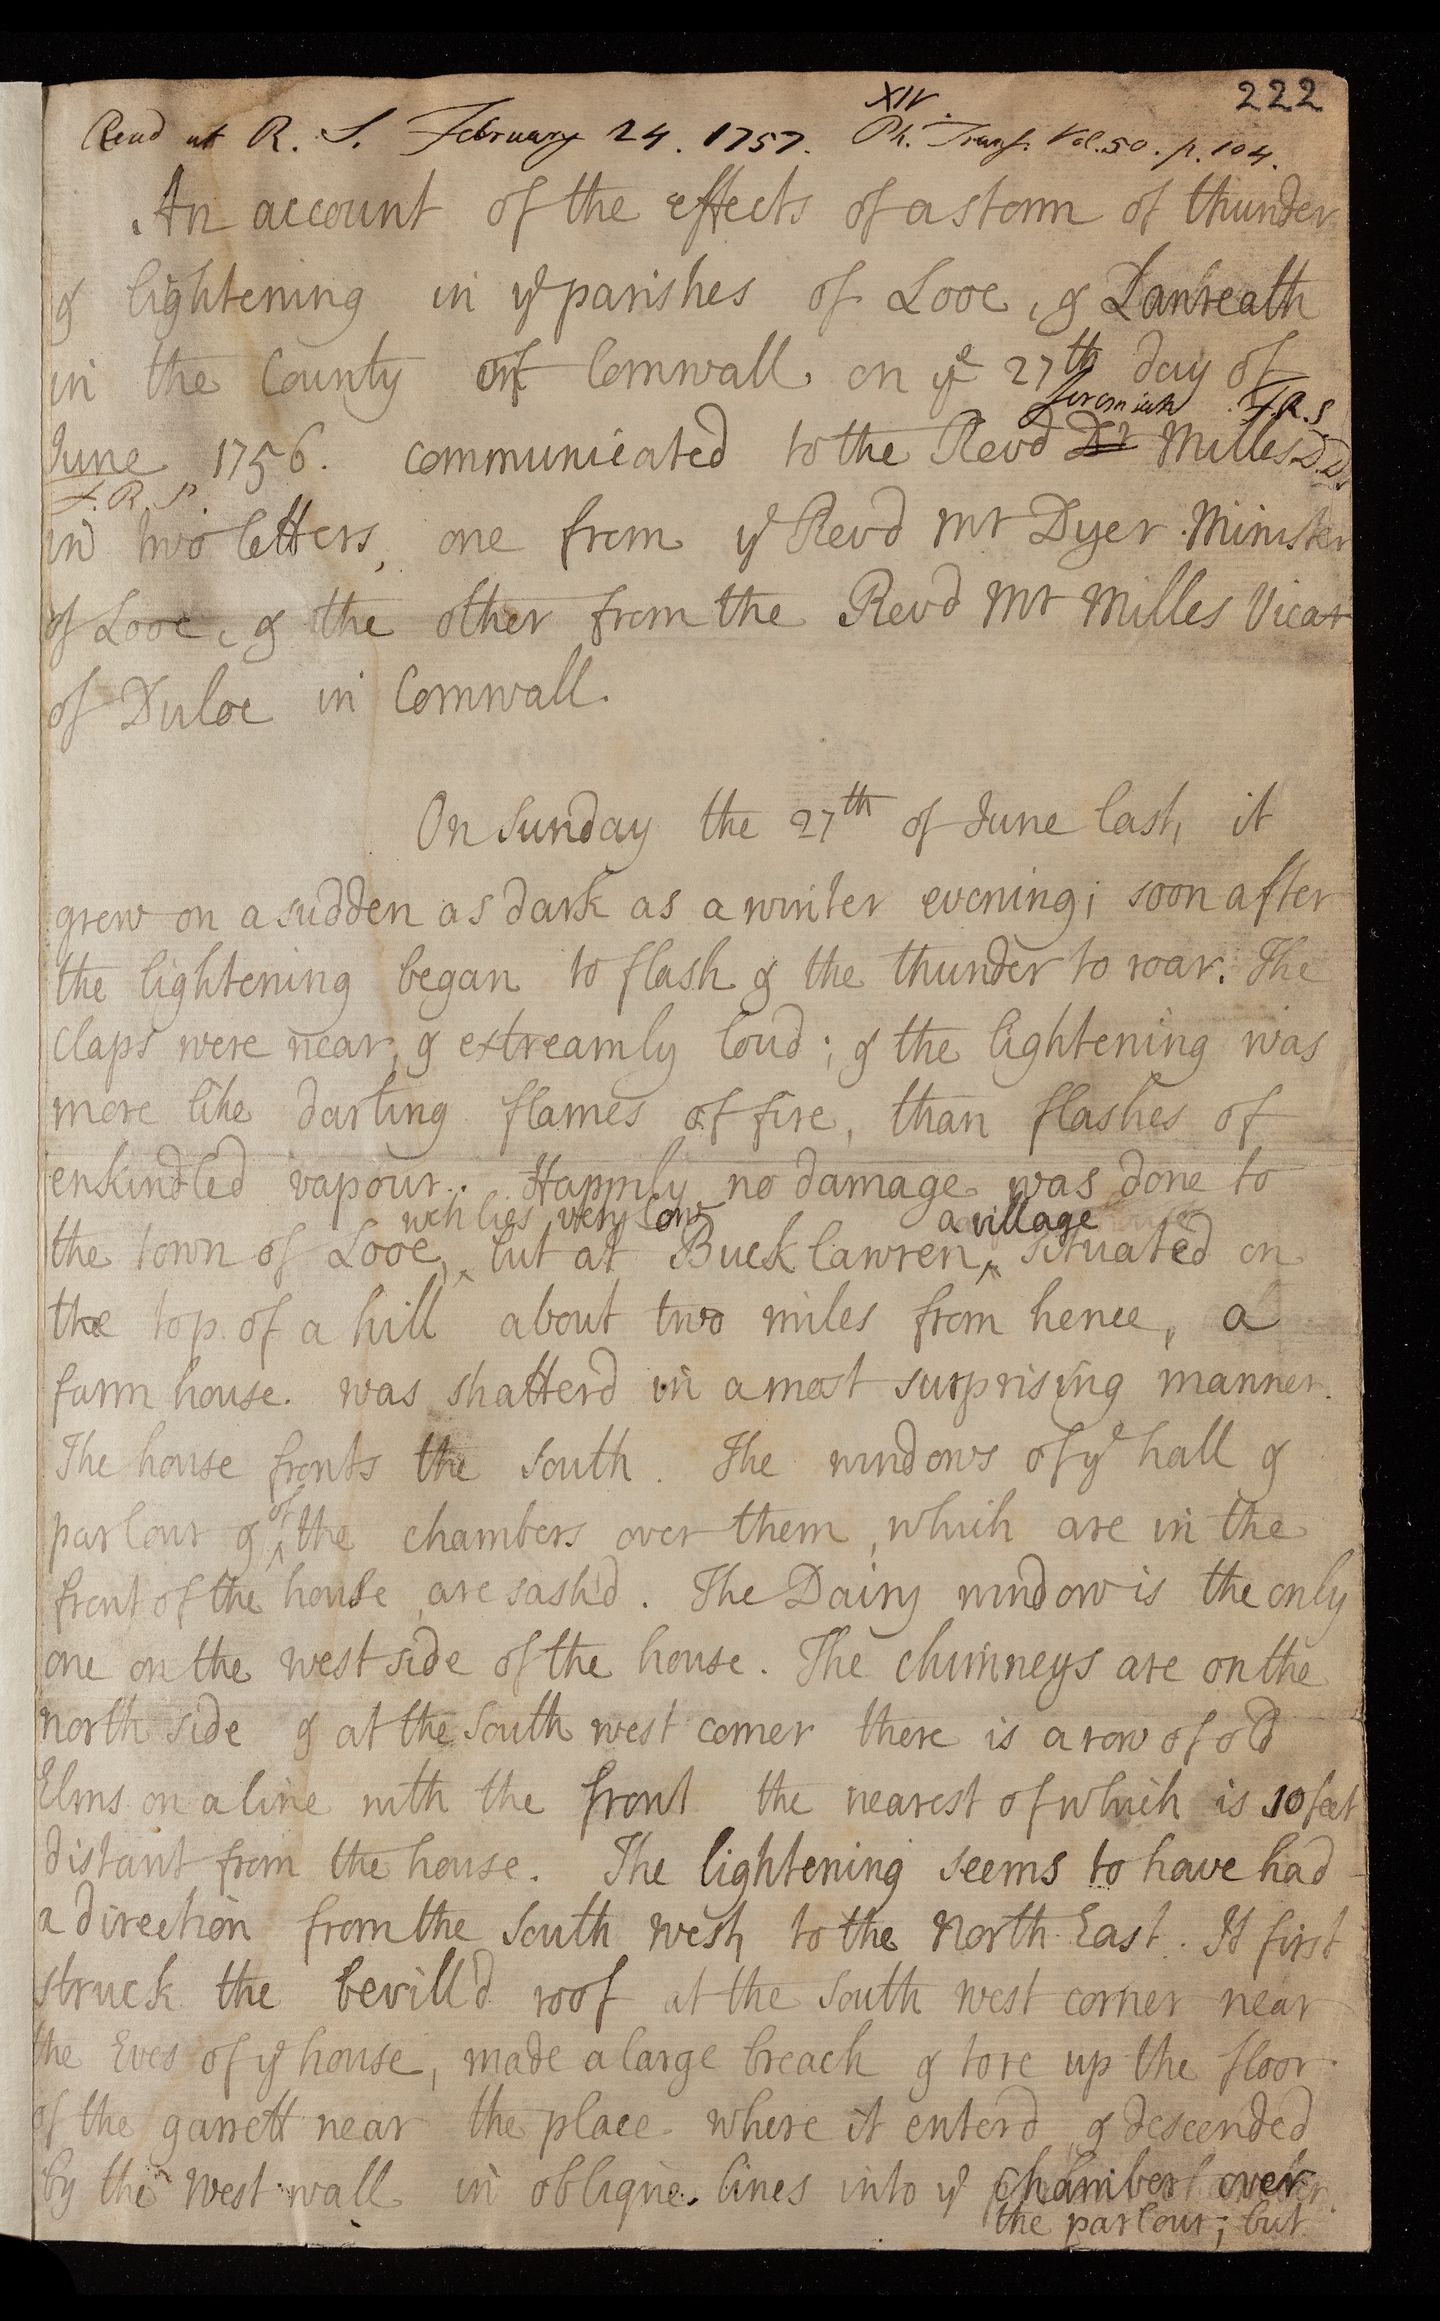 222
XIV.
Read at R. S. February 24. 1757. Ph. Trans. Vol. 50. p. 104.
An account of the effects of a storm of thunder
& lightening in ye parishes of Looe, & Lanreath
in the County of Cornwall on ye 27th day of
Jeremiah F.R.S.
June 1756. communicated to the Revd Dr Milles D.D.
F.R.S.
in two letters, one from ye Revd Mr Dyer Minister
of Looe, & the other from the Revd Mr Milles Vicar
of Duloe in Cornwall.
On Sunday the 27th of June last, it
grew on a sudden as dark as a winter evening; soon after
the lightening began to flash & the thunder to roar. The
claps were near, & extreamly loud; & the lightening was
more like darting flames of fire, than flashes of
enkindled vapour. Happily no damage was done to
wch lies very low a village
the town of Looe, but at Bucklawren, situated on
the top of a hill about two miles from hence, a
farm house was shatterd in a most surprising manner.
The house fronts the South. The windows of ye hall &
of
parlour & the chambers over them, which are in the
front of the house, are sash'd. The Dairy window is the only
one on the west side of the house. The chimneys are on the
north side & at the South west corner there is a row of old
Elms on a line with the front the nearest of which is 10 feet
distant from the house. The lightening seems to have had
a direction from the South west, to the North East. It first
struck the bevill'd roof at the South west corner near
the Eves of ye house, made a large breach & tore up the floor
of the garrett near the place where it enterd, & descended
by the west wall in oblique lines into ye chamber over
the parlour; but